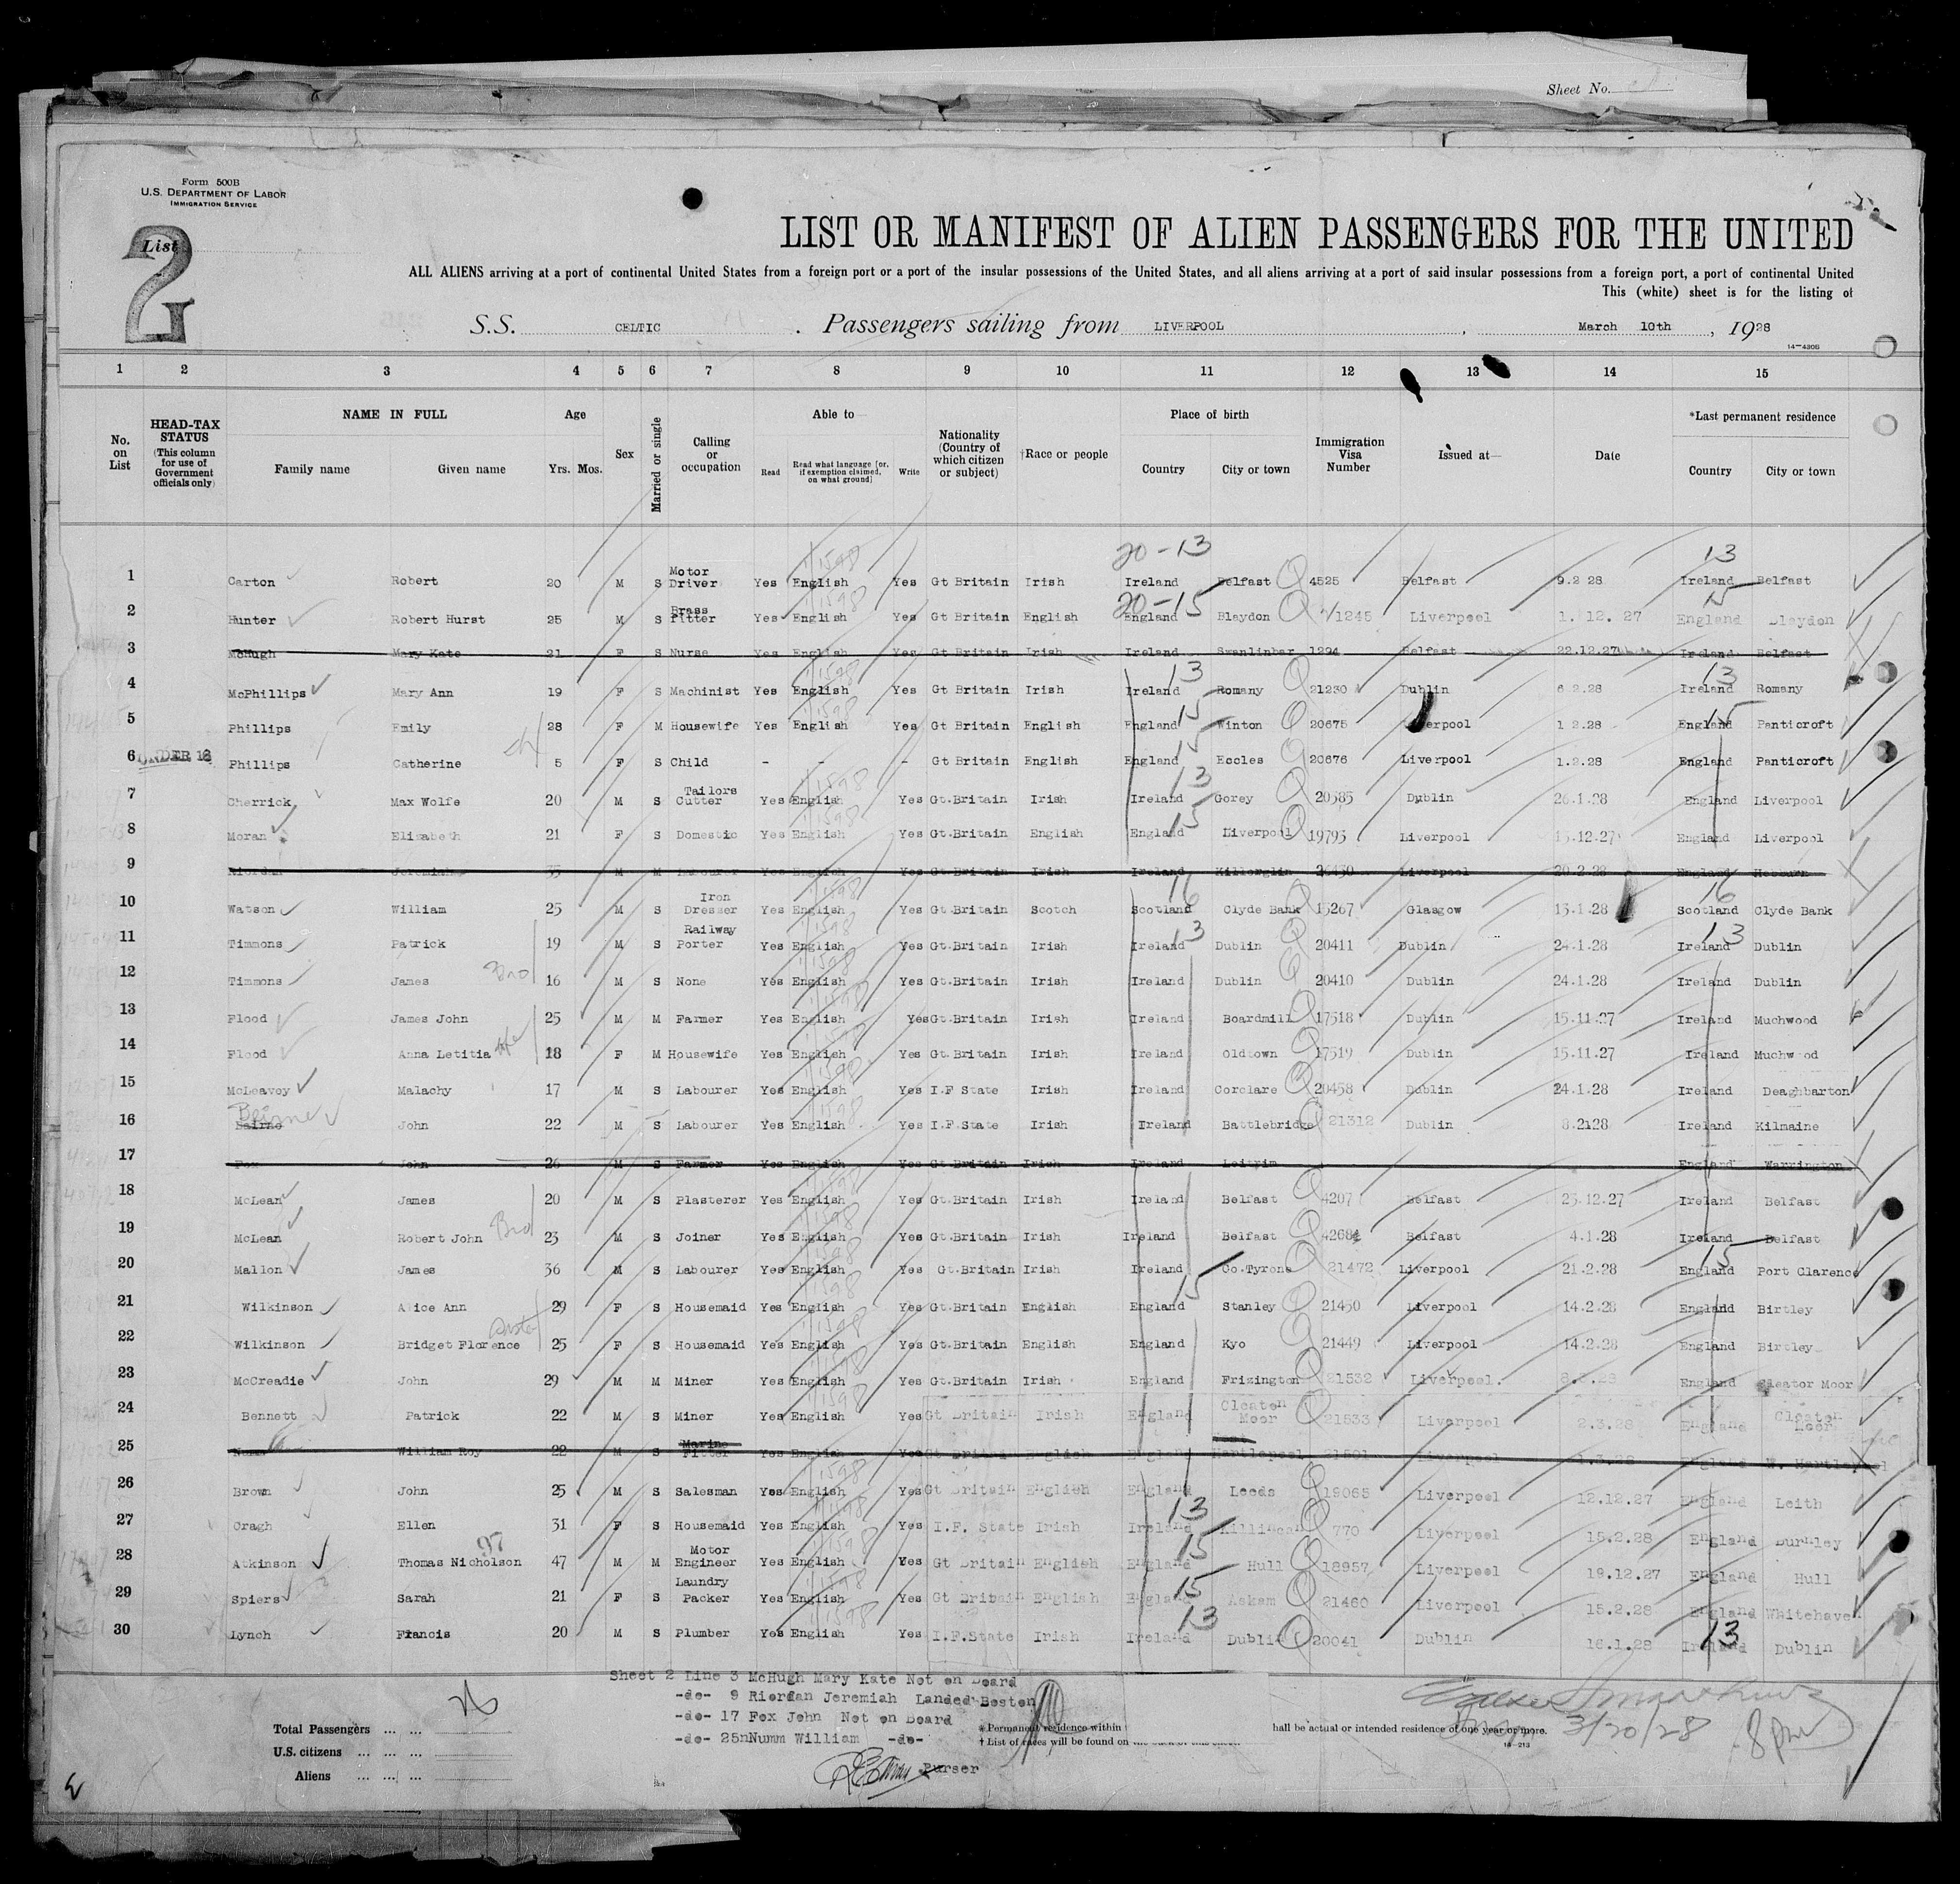 Sheet No.
Form 500B
U.S. DEPARTMENT OF LABOR
IMMIGRATION SERVICE
List
2
LIST OR MANIFEST OF ALIEN PASSENGERS FOR THE UNITED
ALL ALIENS arriving at a port of continental United States from a foreign port or a port of the insular possessions of the United States, and all aliens arriving at a port of said insular possessions from a foreign port, a port of continental United
This (white) sheet is for the listing of
S.S. CELTIC . Passengers sailing from LIVERPOOL , March 10th , 1928
14—4305
1 2 3 4 5 6 7 8 9 10 11 12 13 14 15
No. on List
HEAD-TAX STATUS (This column for use of Government officials only)
NAME IN FULL Family name Given name
Age Yrs. Mos.
Sex
Married or single
Calling or occupation
Able to— Read Read what language [or, if exemption claimed, on what ground] Write
Nationality (Country of which citizen or subject)
†Race or people
Place of birth Country City or town
Immigration Visa Number
Issued at—
Date
*Last permanent residence Country City or town
20-13 13
1 Carton Robert 20 M S Motor Driver Yes English Yes Gt Britain Irish Ireland Belfast 4525 Belfast 9.2 28 Ireland Belfast
20-15 15
2 Hunter Robert Hurst 25 M S Brass Fitter Yes English Yes Gt Britain English England Blaydon 1245 Liverpool 1. 12. 27 England Blaydon
3 McHugh Mary Kate 21 F S Nurse Yes English Yes Gt Britain Irish Ireland Swanlinbar 1294 Belfast 22.12.27 Ireland Belfast
13 13
4 McPhillips Mary Ann 19 F S Machinist Yes English Yes Gt Britain Irish Ireland Romany 21230 Dublin 6 2.28 Ireland Romany
15 15
5 Phillips Emily 28 F M Housewife Yes English Yes Gt Britain English England Winton 20675 Liverpool 1 2.28 England Panticroft
15
6 UNDER 16 Phillips Catherine 5 F S Child - - - Gt Britain English England Eccles 20676 Liverpool 1.2.28 England Panticroft
13
7 Cherrick Max Wolfe 20 M S Tailors Cutter Yes English Yes Gt.Britain Irish Ireland Gorey 20585 Dublin 26.1.28 England Liverpool
15
8 Moran Elizabeth 21 F S Domestic Yes English Yes Gt.Britain English England Liverpool 19795 Liverpool 15.12.27 England Liverpool
9 Riordan Jeremiah 35 M M Labourer Yes English Yes Gt Britain Irish Ireland Killorglin 26450 Liverpool 20.2.28 England Hebburn
16 16
10 Watson William 25 M S Iron Dresser Yes English Yes Gt.Britain Scotch Scotland Clyde Bank 15267 Glasgow 13.1.28 Scotland Clyde Bank
13 13
11 Timmons Patrick 19 M S Railway Porter Yes English Yes Gt.Britain Irish Ireland Dublin 20411 Dublin 24.1.28 Ireland Dublin
12 Timmons James Bro 16 M S None Yes English Yes Gt.Britain Irish Ireland Dublin 20410 Dublin 24.1.28 Ireland Dublin
13 Flood James John 25 M M Farmer Yes English Yes Gt.Britain Irish Ireland Boardmill 17518 Dublin 15.11.27 Ireland Muchwood
14 Flood Anna Letitia 18 F M Housewife Yes English Yes Gt.Britain Irish Ireland Oldtown 17519 Dublin 15.11.27 Ireland Muchwood
15 McLeavoy Malachy 17 M S Labourer Yes English Yes I.F State Irish Ireland Corclare 20458 Dublin 24.1.28 Ireland Deaghbarton
Beirne
16 Bairne John 22 M S Labourer Yes English Yes I.F.State Irish Ireland Battlebridge 21312 Dublin 8.2.28 Ireland Kilmaine
17 Fox John 26 M S Farmer Yes English Yes Gt Britain Irish Ireland Leitrim England Warrington
18 McLean James 20 M S Plasterer Yes English Yes Gt.Britain Irish Ireland Belfast 4207 Belfast 23.12.27 Ireland Belfast
19 McLean Robert John Bro 23 M S Joiner Yes English Yes Gt.Britain Irish Ireland Belfast 4268 Belfast 4.1.28 Ireland Belfast
15
20 Mallon James 36 M S Labourer Yes English Yes Gt.Britain Irish Ireland Co.Tyrone 21472 Liverpool 21.2.28 England Port Clarence
15
21 Wilkinson Alice Ann 29 F S Housemaid Yes English Yes Gt.Britain English England Stanley 21450 Liverpool 14.2.28 England Birtley
22 Wilkinson Bridget Florence Sister 25 F S Housemaid Yes English Yes Gt.Britain English England Kyo 21449 Liverpool 14.2.28 England Birtley
23 McCreadie John 29 M M Miner Yes English Yes Gt.Britain Irish England Frizington 21532 Liverpool. England Cleator Moor
24 Bennett Patrick 22 M S Miner Yes English Yes Gt Britain Irish England Cleaton Moor 21533 Liverpool 2.3.28 England Cleaton Moor
25 William Roy 22 M S Marine Fitter Yes English Yes Gt Britain English England Hartlepool Liverpool England
26 Brown John 25 M S Salesman Yes English Yes Gt Britain English England Leeds 19065 Liverpool 12.12.27 England Leith
13
27 Cragh Ellen 31 F S Housemaid Yes English Yes I.F. State Irish Ireland 770 Liverpool 15.2.28 England Burnley
97 15
28 Atkinson Thomas Nicholson 47 M M Motor Engineer Yes English Yes Gt Britain English England Hull 18957 Liverpool 19.12.27 England Hull
15
29 Spiers Sarah 21 F S Laundry Packer Yes English Yes Gt Britain English England Askam 21460 Liverpool 15.2.28 England Whitehaven
13 13
30 Lynch Francis 20 M S Plumber Yes English Yes I.F.State Irish Ireland Dublin 20041 Dublin 16.1.28 Ireland Dublin
Sheet 2 Line 3 McHugh Mary Kate Not on Board
-do- 9 Riordan Jeremiah Landed Boston
-do- 17 Fox John Not on Board
-do- 25nNumm William -do-
Purser
26
Total Passengers ... ...
U.S. citizens ... ... ...
Aliens ... ... ...
* Permanent residence within
hall be actual or intended residence of one year or more.
† List of races will be found on
16—213
3/20/28 8 pm